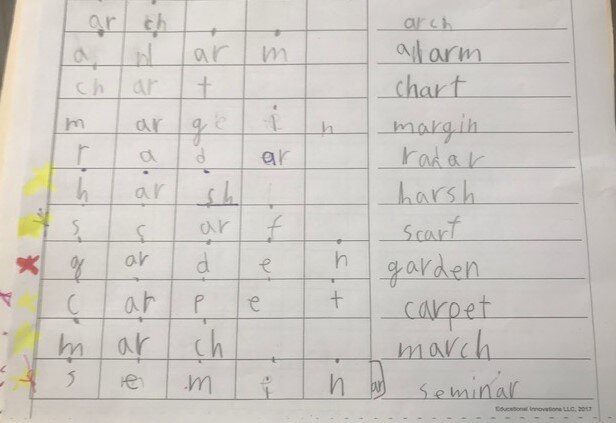 ar ch arch
a l ar m allarm
ch ar t chart
m ar g i n margin
r a d ar radar
h ar sh harsh
s c ar f scarf
g ar d e n garden
c ar p e t carpet
m ar ch march
s e m i n ar seminar
Educational Innovations LLC, 2017